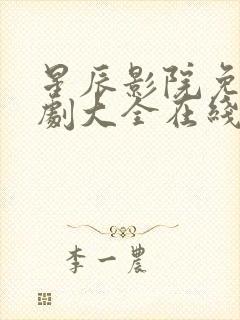 星辰影院免
劇大全在綫
李一農